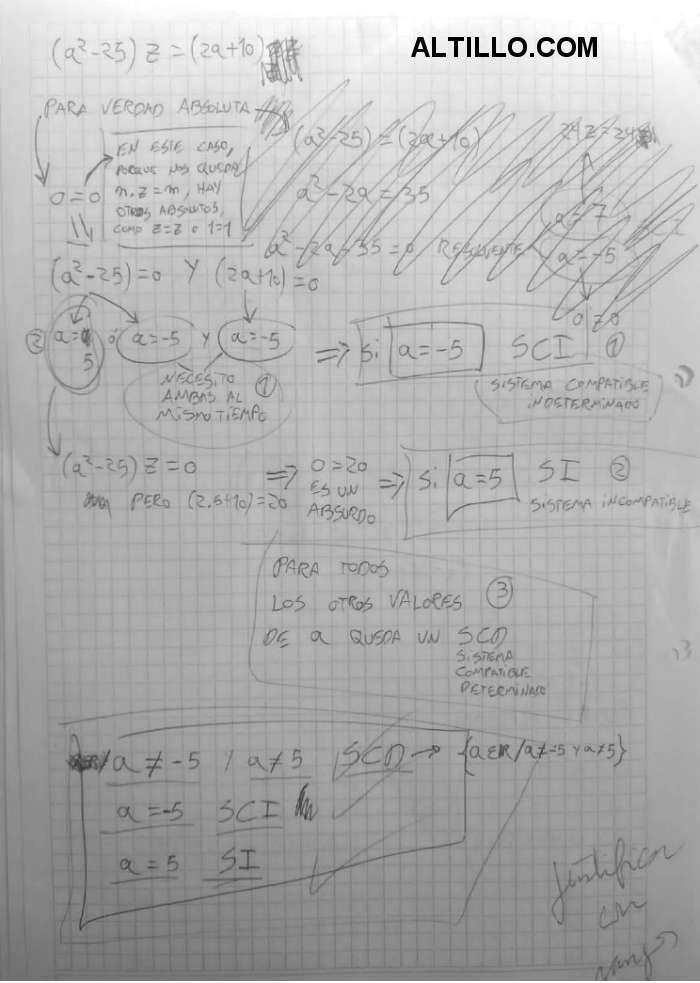 ALTILLO.COM
(a²-25) z = (2a+10)
PARA VERDAD ABSOLUTA
EN ESTE CASO,
PORQUE NOS QUEDA
m.z=m, HAY
OTROS ABSOLUTOS,
COMO z=z o 1=1
0=0
(a²-25) = (2a+10)
a²-2a = 35
a²-2a-35=0 RESOLVENTE
24z=24
a=7
a=-5
0=0
(a²-25)=0 Y (2a+10)=0
② a=5 ó a=-5 Y a=-5
⇒ Si a=-5 SCI ①
NECESITO ①
AMBAS AL
MISMO TIEMPO
SISTEMA COMPATIBLE
INDETERMINADO
(a²-25) z=0
PERO (2.5+10)=20
⇒ 0=20
ES UN
ABSURDO
⇒ Si a=5 SI ②
SISTEMA INCOMPATIBLE
PARA TODOS
LOS OTROS VALORES ③
DE a QUEDA UN SCD
SISTEMA
COMPATIBLE
DETERMINADO
a≠-5 / a≠5 SCD → {a∈R/a≠-5 Y a≠5}
a=-5 SCI
a=5 SI
Justificar
con